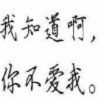 我知道啊,
你不爱我。